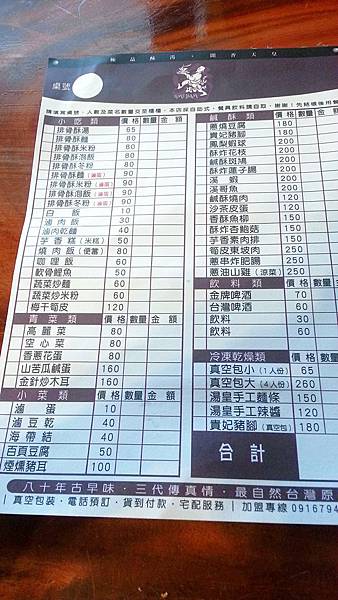 極品酥湯．開香大皇
桌號
小吃類 價格 數量 金額
排骨酥湯 65
排骨酥麵 80
排骨酥米粉 80
排骨酥泡飯 80
排骨酥冬粉 80
排骨酥麵(滷蛋) 90
排骨酥米粉(滷蛋) 90
排骨酥泡飯(滷蛋) 90
排骨酥冬粉(滷蛋) 90
白飯 10
滷肉飯 30
滷肉乾麵 40
芋香糕(米糕) 50
燒肉飯(便當) 80
咖哩飯 60
軟骨鯉魚 50
蔬菜炒麵 60
蔬菜炒米粉 60
梅干筍皮 120
青菜類 價格 數量 金額
高麗菜 80
空心菜 80
香蔥花蛋 80
山苦瓜鹹蛋 160
金針炒木耳 160
小菜類 價格 數量 金額
滷蛋 10
滷豆乾 40
海帶結 40
百頁豆腐 50
煙燻豬耳 100
鹹酥類 價格 數量 金額
蔥燒豆腐 180
貴妃豬腳 180
鳳梨蝦球 200
酥炸花枝 200
鹹酥斑鳩 200
酥炸蓮子腸 200
溪蝦 200
溪哥魚 200
鹹酥燒肉 120
沙茶皮蛋 120
香酥魚柳 150
酥炸杏鮑菇 150
芋香素肉排 150
筍皮東坡肉 250
蔥串炸肥腸 250
蔥油山雞(涼菜) 250
飲料類 價格 數量 金額
金牌啤酒 70
台灣啤酒 60
飲料 30
飲料 60
冷凍乾燥類 價格 數量 金額
真空包小(1人份) 65
真空包大(4人份) 260
湯皇手工麵條 150
湯皇手工辣醬 120
貴妃豬腳(真空包) 180
合計
八十年古早味．三代傳真情．最自然台灣原
|真空包裝．電話預訂．貨到付款．宅配服務|加盟專線 0916794